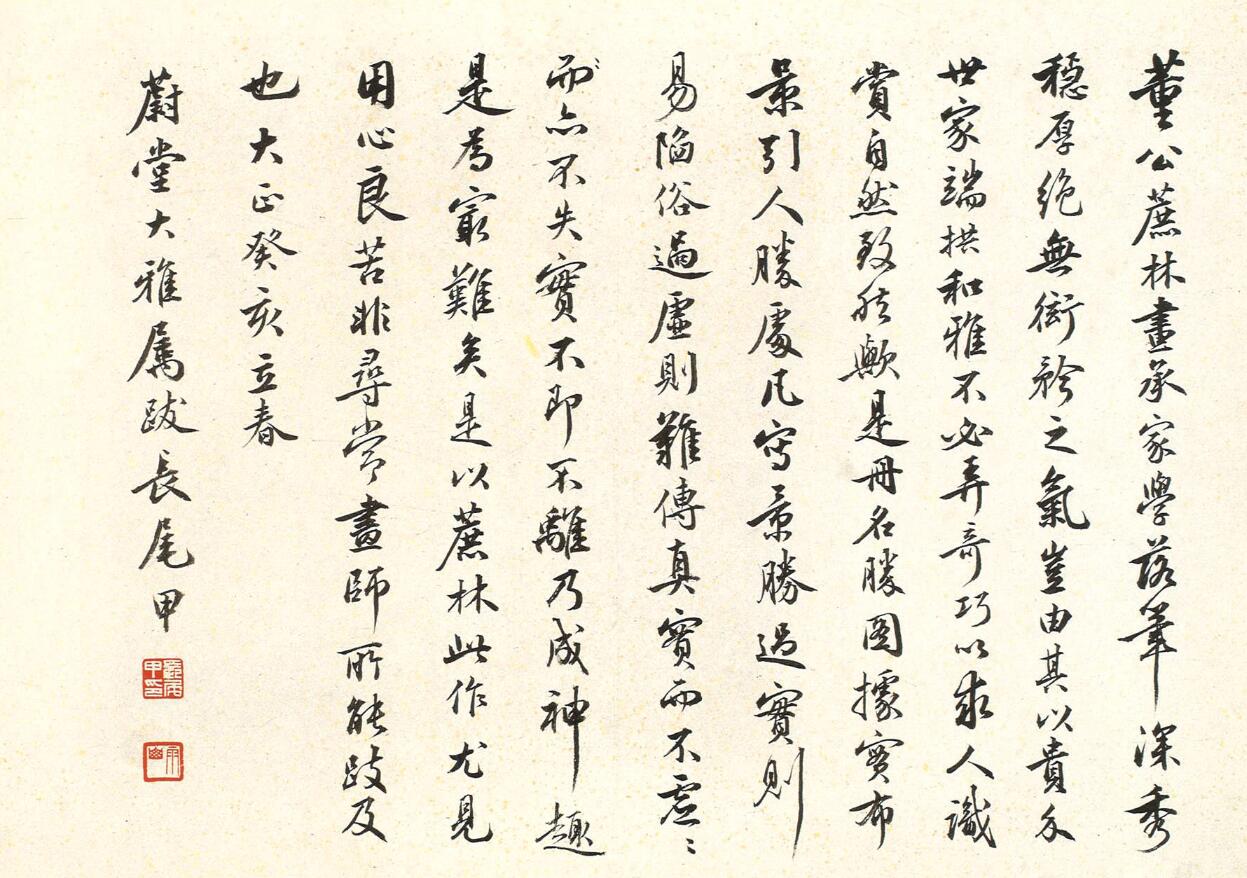 董公蔗林畫承家學落筆深秀
穩厚絶無衒矜之氣豈由其以貴介
世家端拱和雅不必弄奇巧以求人識
賞自然致然歟是冊名勝圖據實布
景引人勝處凡寫景勝過實則
易陷俗過虛則難傳真實而不虛〻
而亦不失實不即不離乃成神趣
是為最難矣是以蔗林此作尤見
用心良苦非尋常畫師所能跂及
也大正癸亥立春
蔚堂大雅属跋長尾甲